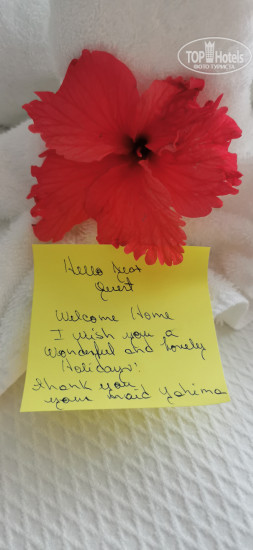 TOPHotels
ФОТО ТУРИСТА
Hello Dear
Guest
Welcome Home
I wish you a
wonderful and lovely
Holidays!
thank you
your maid Yahima